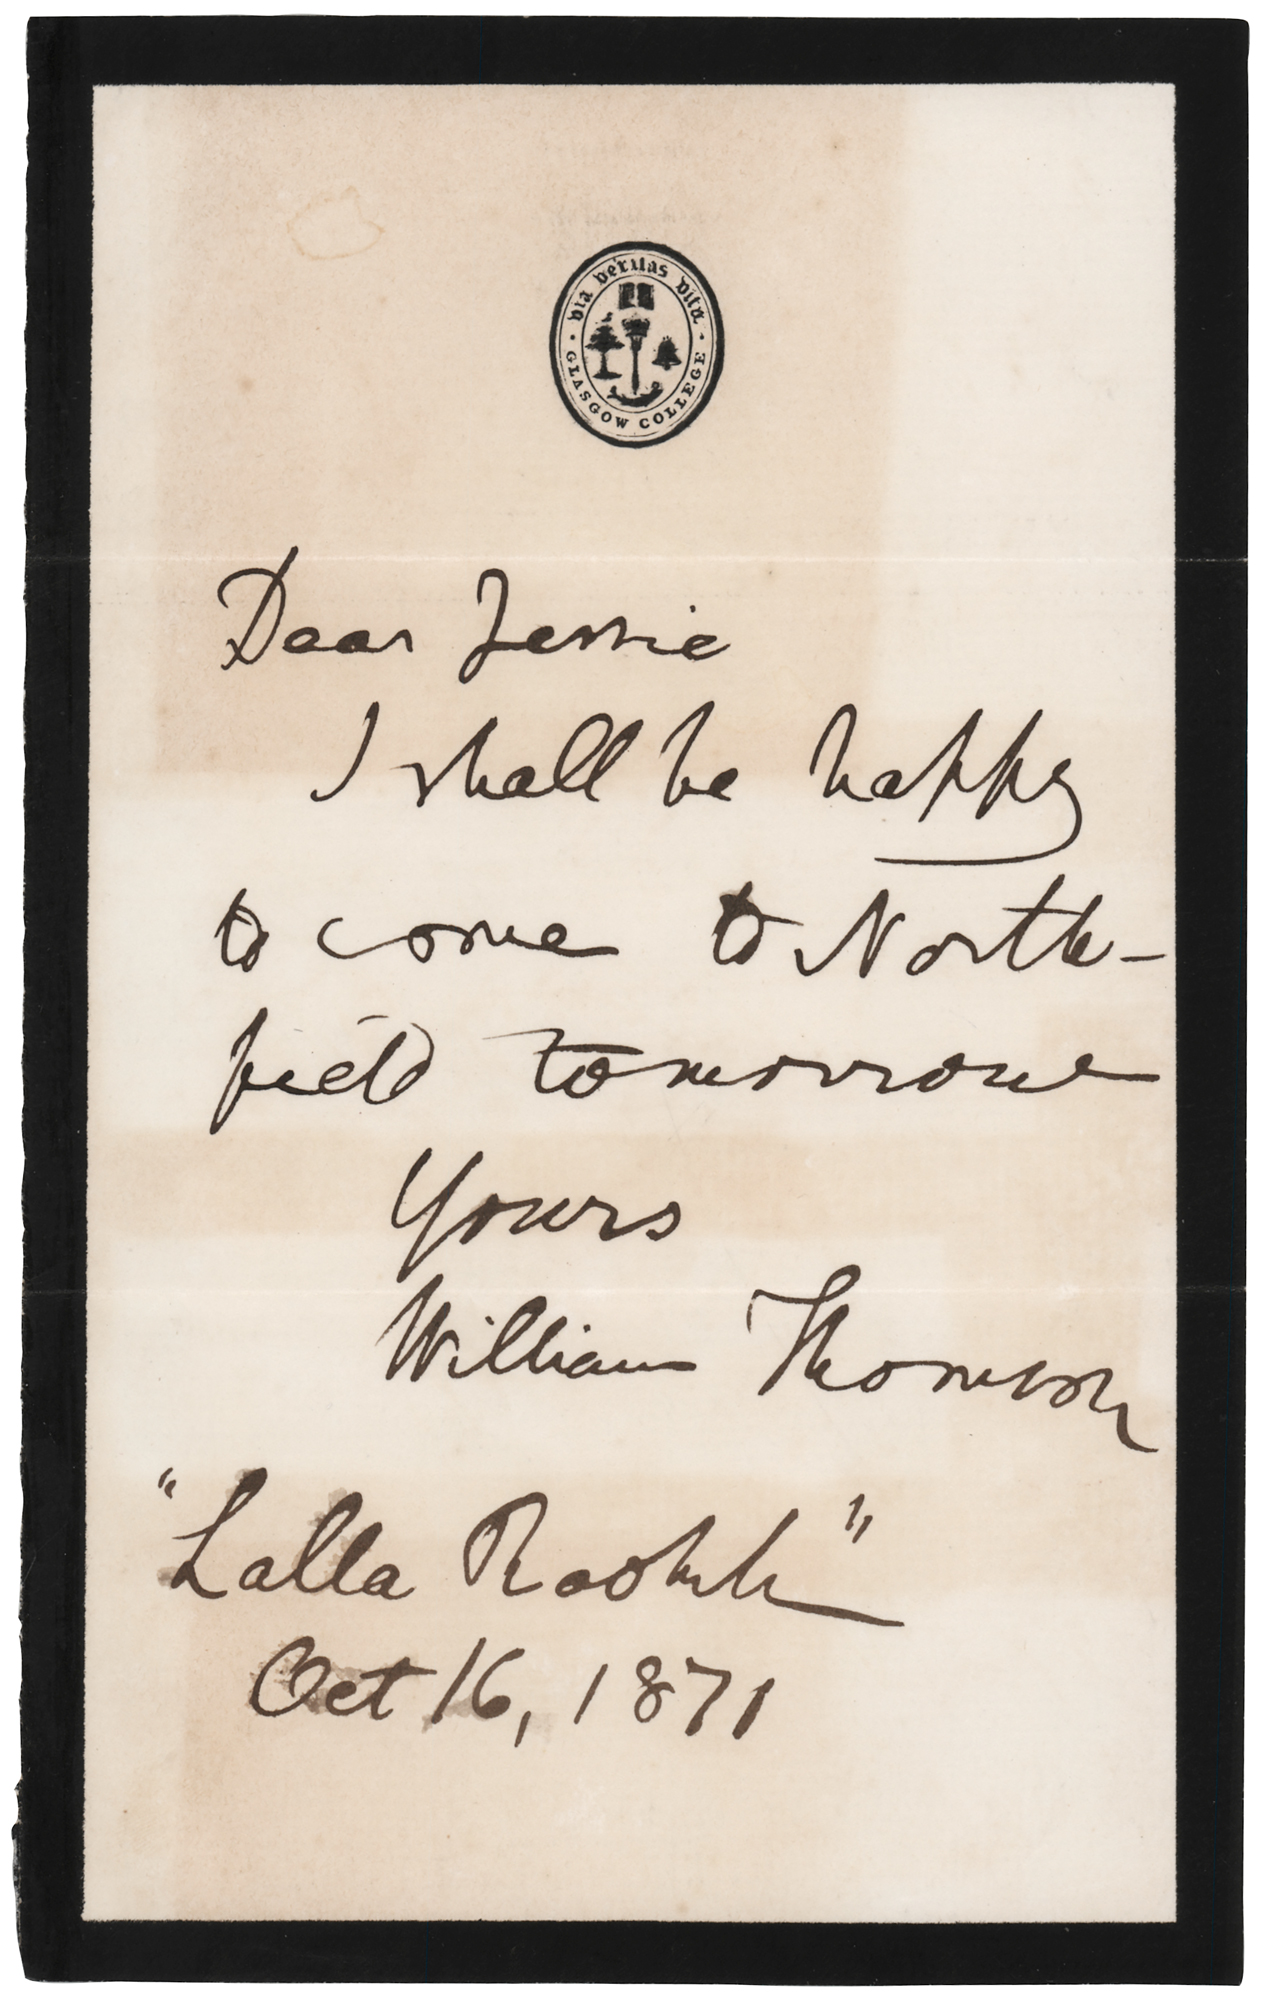 via veritas vita
GLASGOW COLLEGE
Dear Jessie
I shall be happy
to come to North-
field tomorrow
Yours
William Thomson
"Lalla Rookh"
Oct 16, 1871